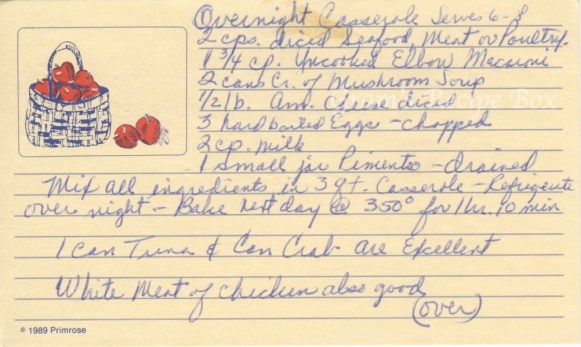 Overnight Casserole Serves 6-8
2 cps. diced Seafood, Meat or Poultry.
1 3/4 cp. Uncooked Elbow Macaroni
2 cans Cr. of Mushroom Soup
1/2 lb. Am. Cheese diced
3 hard boiled Eggs - chopped
2 cp. Milk
1 Small jar Pimento - drained
Mix all ingredients in 3 qt. Casserole - Refrigerate
over night - Bake next day @ 350° for 1 hr. 10 min
1 Can Tuna & Can Crab are Excellent
White Meat of Chicken also good
(over)
© 1989 Primrose